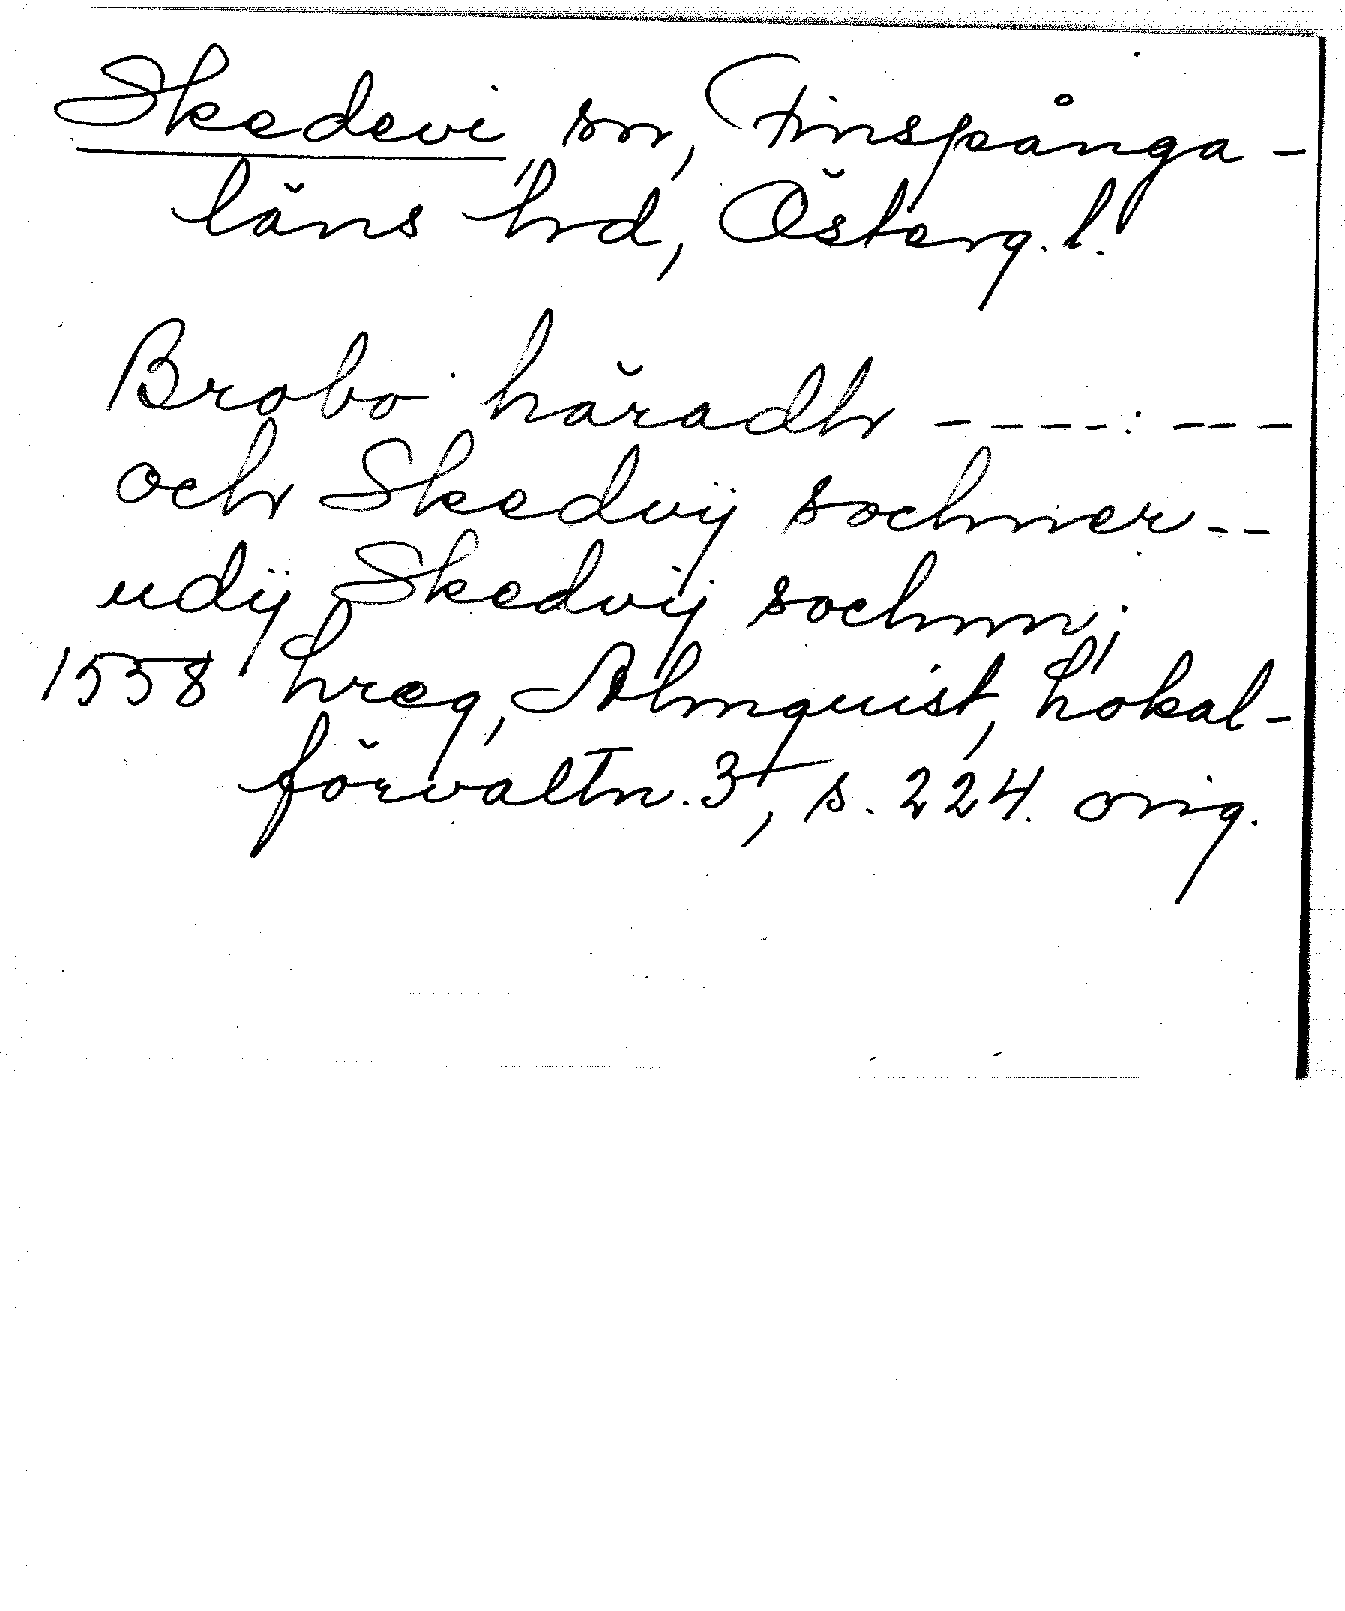 Skedevi, sn, Finspånga-
läns hd, Österg. l.
Brobo häradh ----: ---
och Skedvij sochner --
udij Skedvij sochnn;
1558 hreg, Almquist, Lokal-
förvaltn. 3, s. 224. orig.